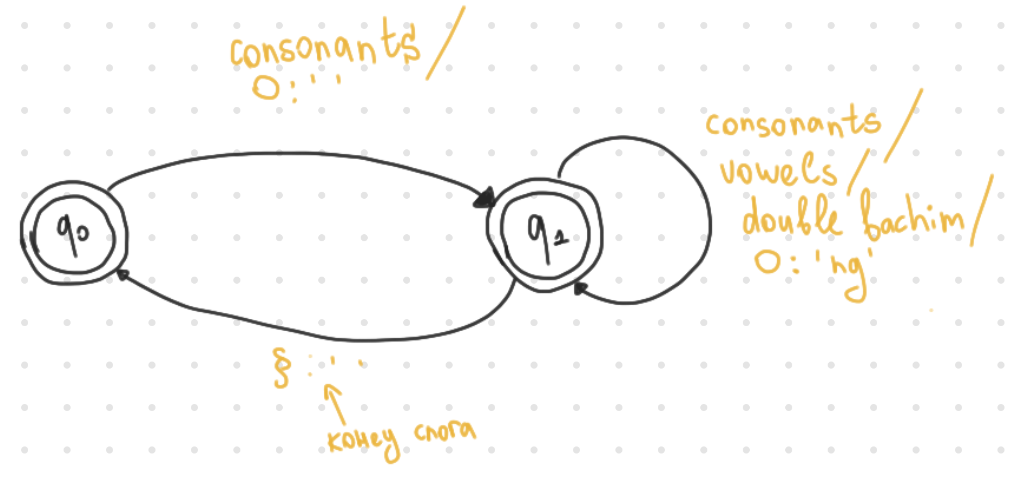 consonants /
O : ' '
q0
q1
consonants /
vowels /
double bachim /
O : 'ng'
§ : ' '
конец слога